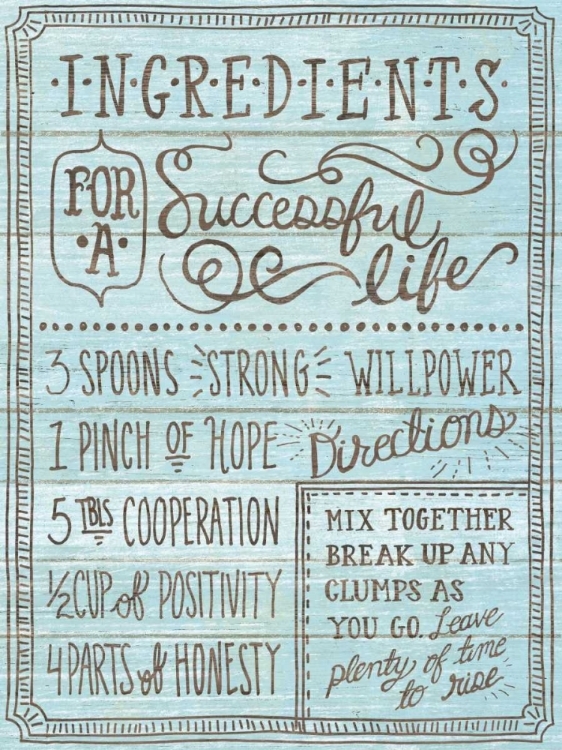 I·N·G·R·E·D·I·E·N·T·S
FOR
·A·
Successful
life
3 SPOONS STRONG WILLPOWER
1 PINCH OF HOPE
5 TBLS COOPERATION
1/2 CUP of POSITIVITY
4 PARTS of HONESTY
Directions
MIX TOGETHER
BREAK UP ANY
CLUMPS AS
YOU GO. Leave
plenty of time
to rise